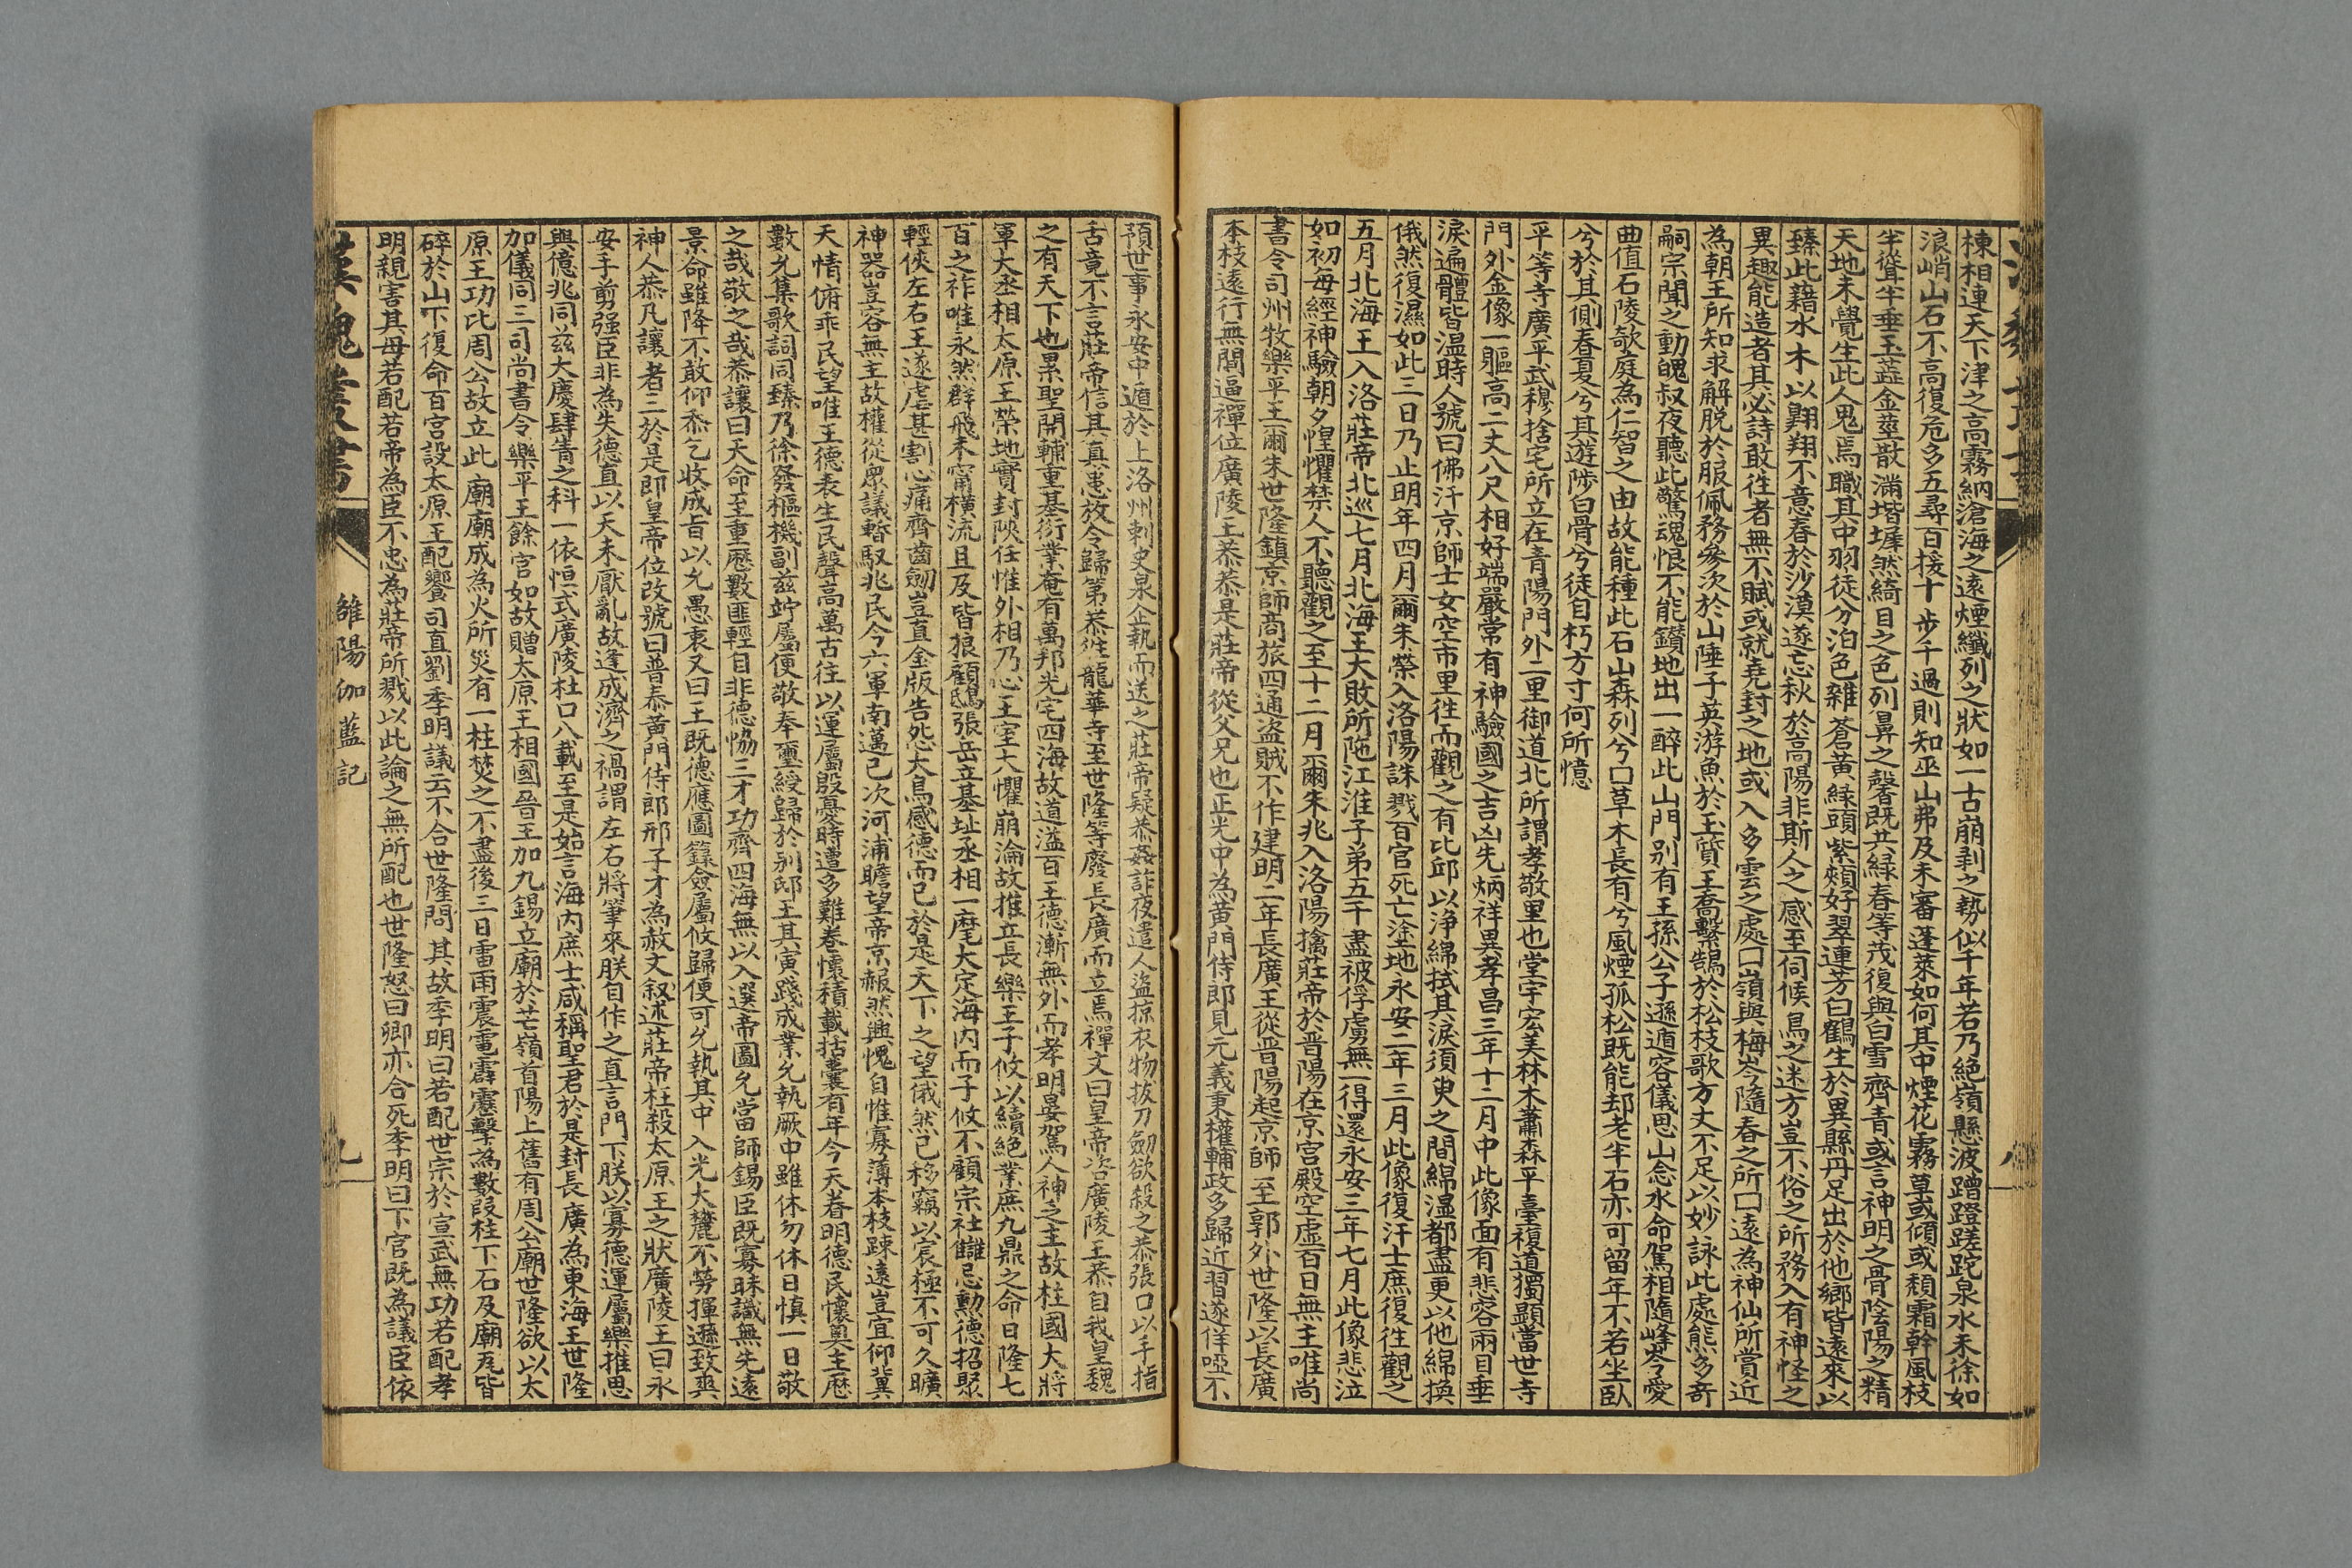 棟相連天下津之高霧納滄海之遠煙纖列之狀如一古崩剥之勢似千年若乃絶嶺懸波蹭蹬蹉跎泉水未徐如
浪峭山石不高復危多五尋百揬十步千過則知巫山弗及未審蓬萊如何其中煙花霧草或傾或頹霜幹風枝
半聳半垂玉蕋金莖散滿堦墀然綺目之色列鼻之馨既共緑春等茂復與白雪齊青或言神明之骨陰陽之精
天地未覺生此人鬼焉職其中羽徒分泊色雜蒼黃緑頭紫頰好翠連芳白鶴生於異縣丹足出於他鄉皆遠來以
臻此藉水木以翺翔不意春於沙漠遂忘秋於高陽非斯人之感至伺候鳥之迷方豈不俗之所務入有神怪之
異趣能造者其必詩敢徃者無不賦或就堯封之地或入多雲之處口嶺與梅岑隨春之所口遠為神仙所賞近
為朝王所知求解脱於服佩務參次於山陲子英游魚於玉質王喬繫鵠於松枝歌方丈不足以妙詠此處態多竒
嗣宗聞之動魄叔夜聽此驚魂恨不能鑽地出一醉此山門别有王孫公子遜遁容儀思山念水命駕相隨峰岑愛
曲值石陵欹庭為仁智之由故能種此石山森列兮口草木長有兮風煙孤松既能却老半石亦可留年不若坐臥
兮於其側春夏兮其遊陟白骨兮徒自朽方寸何所憶
平等寺廣平武穆捨宅所立在青陽門外二里御道北所謂孝敬里也堂宇宏美林木蕭森平臺複道獨顯當世寺
門外金像一軀高二丈八尺相好端嚴常有神驗國之吉凶先炳祥異孝昌三年十二月中此像面有悲容兩目垂
淚遍體皆温時人號曰佛汗京師士女空市里徃而觀之有比邱以净綿拭其淚須臾之間綿温都盡更以他綿换
俄然復濕如此三日乃止明年四月爾朱榮入洛陽誅戮百官死亡塗地永安二年三月此像復汗士庶復徃觀之
五月北海王入洛莊帝北巡七月北海王大敗所陁江淮子弟五千盡被俘虜無一得還永安三年七月此像悲泣
如初每經神驗朝夕惶懼禁人不聽觀之至十二月爾朱兆入洛陽擒莊帝於晋陽在京宫殿空虚百日無主唯尚
書令司州牧樂平王爾朱世隆鎮京師商旅四通盗賊不作建明二年長廣王從晋陽起京師至郭外世隆以長廣
本枝遠行無聞逼禪位廣陵王恭恭是莊帝從父兄也正光中為黃門侍郎見元義秉權輔政多歸近習遂佯啞不
預世事永安中遁於上洛州刺史泉企執而送之莊帝疑恭姦詐夜遣人盗掠衣物拔刀劒欲殺之恭張口以手指
舌竟不言莊帝信其真患放令歸第恭徃龍華寺至世隆等廢長廣而立焉禪文曰皇帝咨廣陵王恭自我皇魏
之有天下也累聖開輔重基衍業奄有萬邦光宅四海故道溢百王德漸無外而孝明晏駕人神乏主故柱國大將
軍大丞相太原王榮地實封陝任惟外相乃心王室大懼崩淪故推立長樂王子攸以續絶業庶九鼎之命日隆七
百之祚唯永然群飛未甯横流且及皆狼顧鴟張岳立基址丞相一麾大定海内而子攸不顧宗社讎忌勳德招聚
輕俠左右壬遂虐甚割心痛齊齒劒豈直金版告怨大鳥感德而已於是天下之望俄然已移竊以宸極不可久曠
神器豈容無主故權從衆議暫馭兆民今六軍南邁已次河浦瞻望帝京赧然興愧自惟寡薄本枝踈遠豈宜仰冀
天情俯乖民望唯王德表生民聲高萬古徃以運屬殷憂時遭多難卷懷積載括囊有年今天眷明德民懷奥主歷
數允集歌詞同臻乃徐發樞機副兹竚屬便敬奉璽綬歸於别邸王其寅踐成業允執厥中雖休勿休日慎一日敬
之哉敬之哉恭讓曰天命至重歷數匪輕自非德恊三才功齊四海無以入選帝圖允當師錫臣既寡昧識無先遠
景命雖降不敢仰黍乞收成旨以允愚衷又曰王既德應圖籙僉屬攸歸便可允執其中入光大麓不勞揮遜致爽
神人恭凡讓者三於是即皇帝位改號曰普泰黃門侍郎邢子才為赦文叙述莊帝枉殺太原王之狀廣陵王曰永
安手剪强臣非為失德直以天未厭亂故逢成濟之禍謂左右將筆來朕自作之直言門下朕以寡德運屬樂推思
與億兆同兹大慶肆眚之科一依恒式廣陵杜口八載至是始言海内庶士咸稱聖君於是封長廣為東海王世隆
加儀同三司尚書令樂平王餘官如故贈太原王相國晉王加九錫立廟於芒嶺首陽上舊有周公廟世隆欲以太
原王功比周公故立此廟廟成為火所災有一柱焚之不盡後三日雷雨震電霹靂擊為數段柱下石及廟瓦皆
碎於山下復命百官設太原王配饗司直劉季明議云不合世隆問其故季明曰若配世宗於宣武無功若配孝
明親害其母若配若帝為臣不忠為莊帝所戮以此論之無所配也世隆怒曰卿亦合死季明曰下官既為議臣依
漢魏叢書
雒陽伽藍記
九